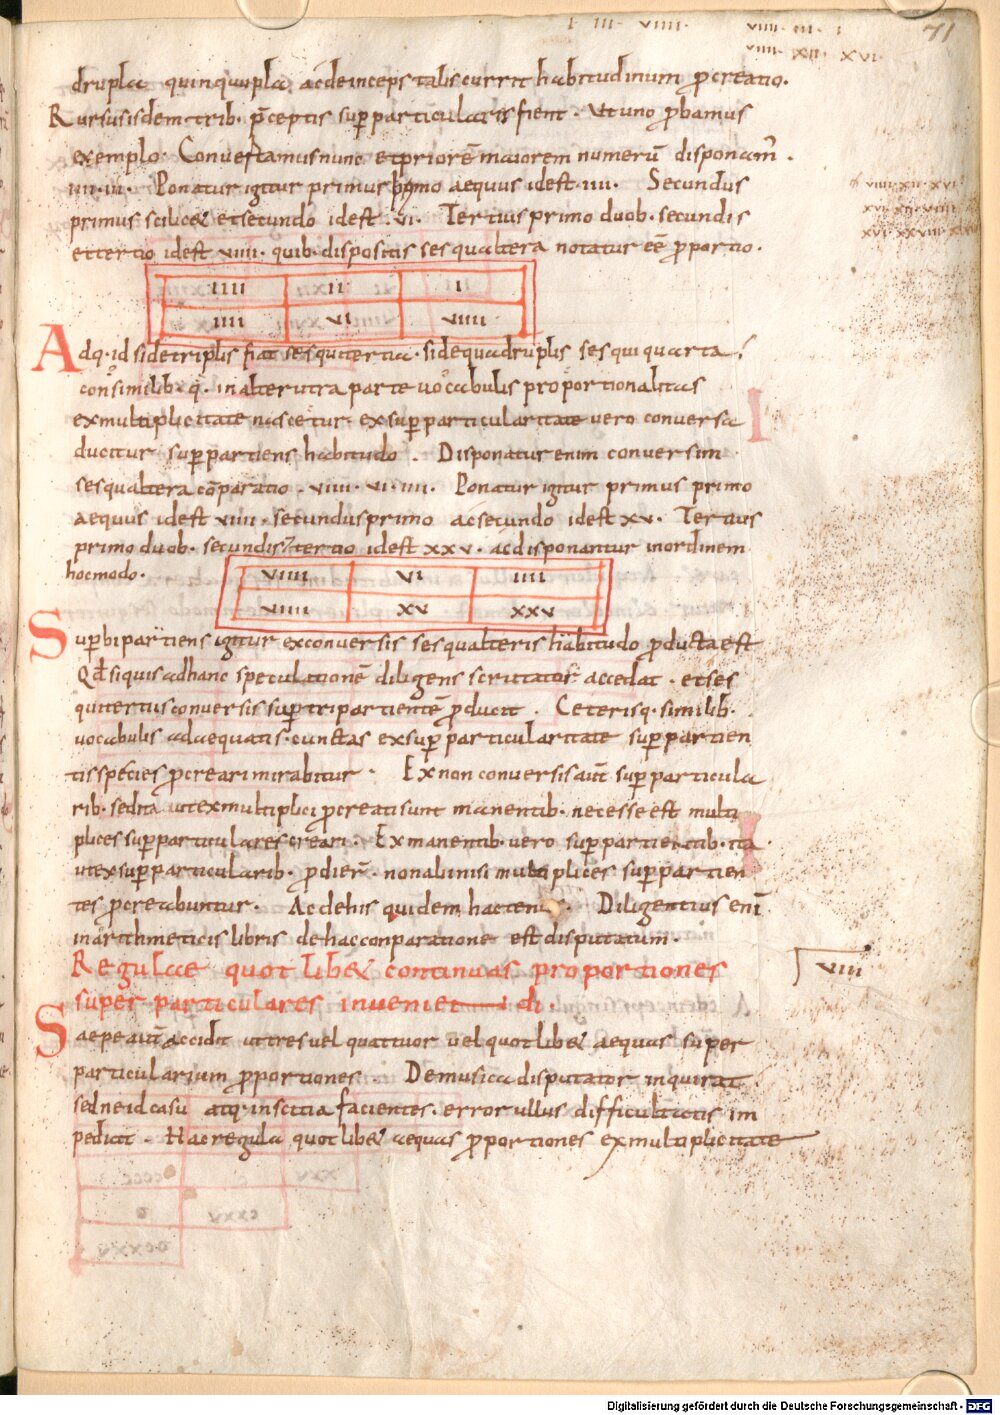 I III VIIII
VIIII III I
VIIII XII XVI
71
drupla quinquupla ac deinceps talis currit habitudinum ꝓcreatio.
Rursus isdem trib· p̄ceptis suꝑparticularis fient. Ut uno ꝓbamus
exemplo. Convertamus nunc et priorē maiorem numerū disponam̄.
IIII·II·I. Ponatur igitur primus primo aequus id est·IIII. Secundus
primus scilic& et secundo id est·VI. Tertius primo duob· secundis
et tertio id est VIIII· quib· dispositis sesqualtera notatur eē ꝓportio.
VIIII·XII·XVI
XVI·XII·VIIII
XVI XXVIII
IIII II I
IIII VI VIIII
Adq· id si de triplis fiat sesquitertia· si de quadruplis sesquiquarta;
consimilib· q· in alterutra parte vocabulis proportionalitas
ex multiplicitate nascetur· ex suꝑparticularitate vero conversa
ducitur suꝑpartiens habitudo. Disponatur enim conversim
sesqualtera cōparatio. VIIII·VI·IIII. Ponatur igitur primus primo
aequus id est VIIII· secundus primo ac secundo id est XV. Tertius
primo duob· secundis & tertio id est XXV· ac disponantur in ordinem
hoc modo.
VIIII VI IIII
VIIII XV XXV
Suꝑbipartiens igitur ex conversis sesqualteris habitudo ꝓducta est
Qd̄ si quis ad hanc speculationē diligens scrutator accedat· et ses
quitertius conversis suꝑtripartientē ꝓducit. Ceterisq· similib·
vocabulis adaequatis· cunctas ex suꝑparticularitate suꝑpartien
tis species ꝓcreari mirabitur. Ex non conversis aūt suꝑparticula
rib· sed ita ut ex multiplici ꝓcreati sunt manentib· necesse est multi
plices suꝑparticulares creari. Ex manentib· vero suꝑpartientib· ita
ut ex suꝑparticularib· ꝓdier̄· non alii nisi multiplices suꝑpartien
tes ꝓcreabuntur. Ac de his quidem hactenus. Diligentius enī
in arithmeticis libris de hac conparatione est disputatum.
VIII
Regulae quotlib& continuas proportiones
superparticulares inveniendi
Saepe aūt accidit ut tres vel quattuor vel quotlib& aequas super
particularium ꝓportiones. De musica disputator inquirat
sed ne id casu atq· inscitia facientes· error ullus difficultatis im
pediat. Hac regula quotlib& aequas ꝓportiones ex multiplicitate
Digitalisierung gefördert durch die Deutsche Forschungsgemeinschaft - DFG